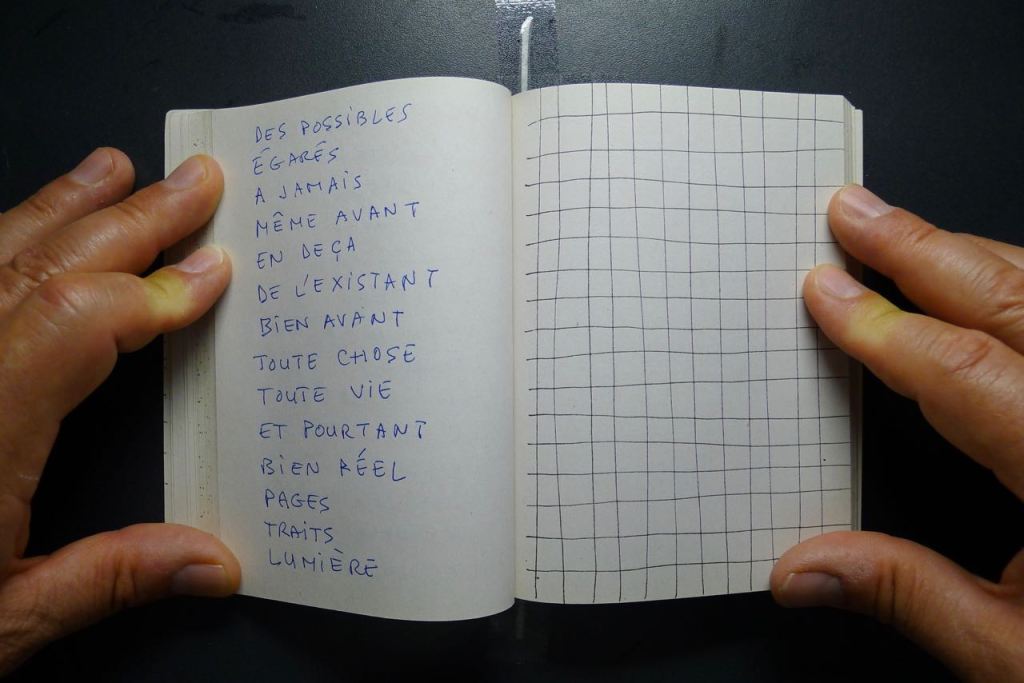 DES POSSIBLES
ÉGARÉS
A JAMAIS
MÊME AVANT
EN DEÇA
DE L'EXISTANT
BIEN AVANT
TOUTE CHOSE
TOUTE VIE
ET POURTANT
BIEN RÉEL
PAGES
TRAITS
LUMIÈRE